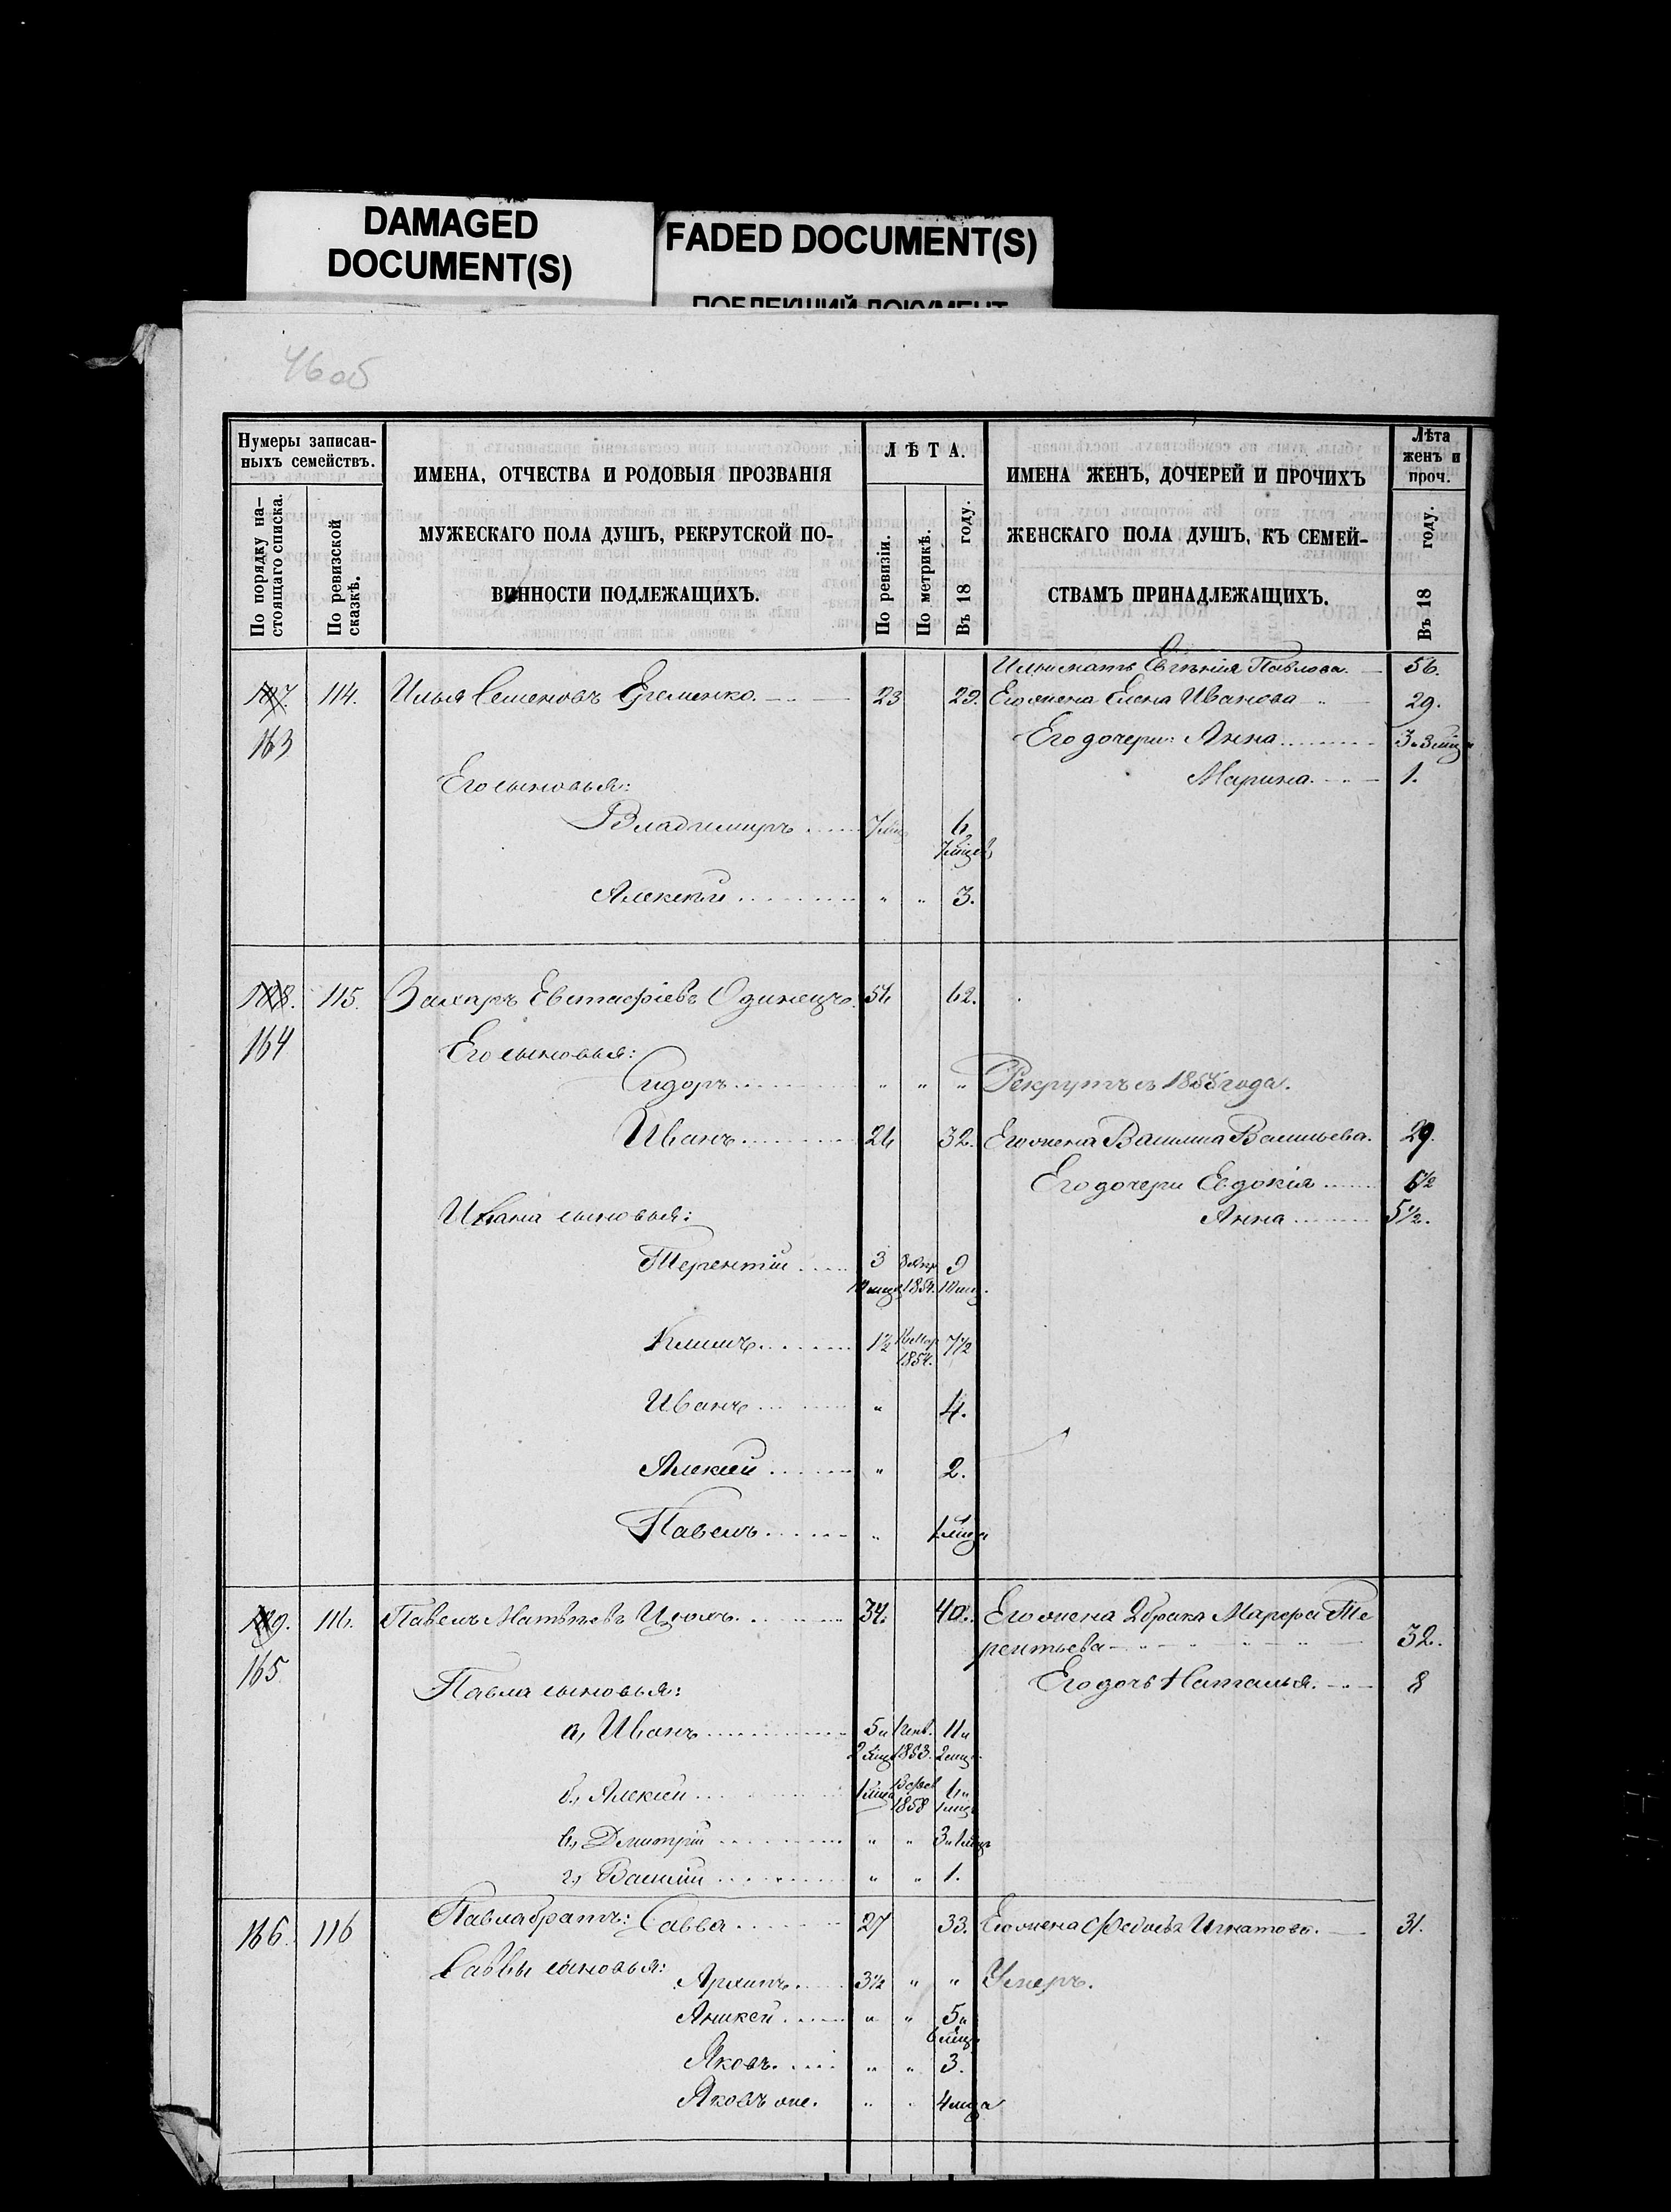 DAMAGED
DOCUMENT(S)
FADED DOCUMENT(S)
ПОБЛЕКШИЙ ДОКУМЕНТ
46об
Нумеры записан-
ныхъ семействъ.
По порядку на-
стоящаго списка.
По ревизской
сказкѣ.
ИМЕНА, ОТЧЕСТВА И РОДОВЫЯ ПРОЗВАНІЯ
МУЖЕСКАГО ПОЛА ДУШЪ, РЕКРУТСКОЙ ПО-
ВИННОСТИ ПОДЛЕЖАЩИХЪ.
ЛѢТА.
По ревизіи.
По метрикѣ.
Въ 18 году.
ИМЕНА ЖЕНЪ, ДОЧЕРЕЙ И ПРОЧИХЪ
ЖЕНСКАГО ПОЛА ДУШЪ, КЪ СЕМЕЙ-
СТВАМЪ ПРИНАДЛЕЖАЩИХЪ.
Лѣта
женъ и
проч.
Въ 18 году.
Ильи мать Евгенія Павлова. 56.
114. Илья Семеновъ Еременко. 23 29. Его жена Елена Иванова 29.
163 Его дочери: Анна 3 и 3 мца
Его сыновья: Марина. 1.
Владимиръ 7 мц 6
7 мцев
Алексѣй " " 3.
115. Захаръ Евстафіевъ Одинецъ. 56 62.
164 Его сыновья:
Сидоръ " " " Рекрутъ съ года.
Иванъ 26 32. Его жена Васильева. 29.
Его дочери Евдокія 6½
Ивана сыновья: Анна 5½.
Терентій 3 9
10 мцев 1854. 10 мц.
Климъ 1½ 7½
1854.
Иванъ " 4.
Алексѣй " 2.
Павелъ " 1 мца
116. Павелъ Матвѣевъ 34. 40. Его жена 2 брака Марфа Те
рентьева 32.
165 Павла сыновья: Его дочь Наталья. 8
а, Иванъ 5 и 11 и
2 мца 1853. 2 мц.
б, Алексѣй 1 мца 6 и
1858 1 мца
в, Дмитрій " " 3 и 1 мца
г, Василій " " 1.
166. 116 Павла братъ: Савва 27 33. Его жена Игнатова. 31.
Саввы сыновья: Архипъ. 3½ " " Умеръ.
Аникей " " 5 и
6 мца
Яковъ. " " 3.
Яковъ же. " " 4 мца